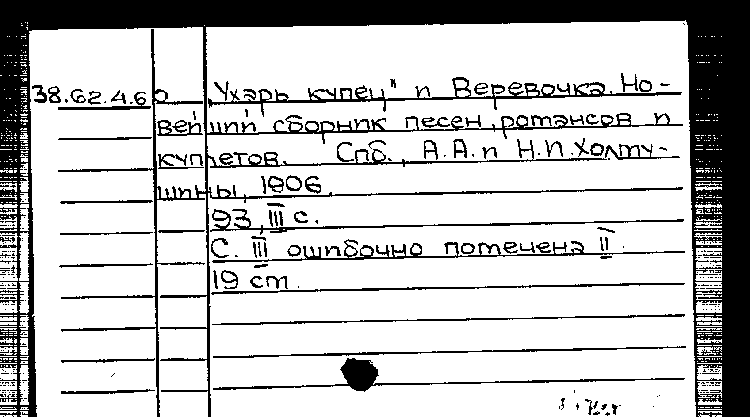 38.62.4.60 „Ухарь купец" и Веревочка. Но-
вейший сборник песен, романсов и
куплетов. Спб., А.А. и Н.И. Холму-
шины, 1906.
93, III с.
С. III ошибочно помечена II.
19 см.